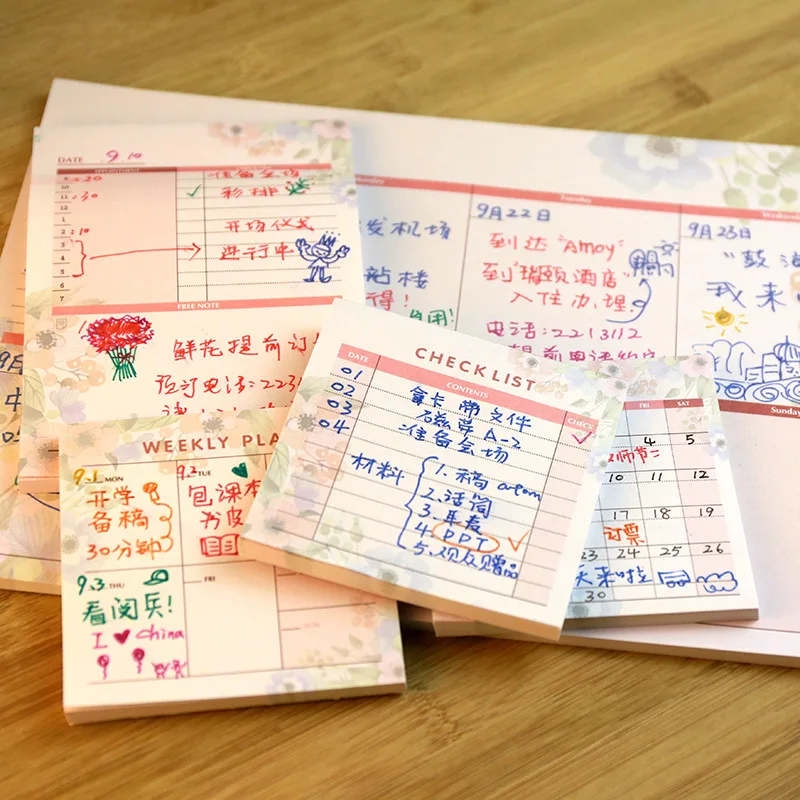 DATE 9.10
APPOINTMENT
9:20
准备会场
10
11:30
✓ 彩排
12
1
开场仪式
2:10
3
进行中
4
5
6
7
FREE NOTE
鲜花提前订
预订电话:223
Monday
发机场
站楼
得!
用!
Tuesday
9月22日
到达 "Amoy"
到"瑞颐酒店"
入住办理.
电话:2213112
提前电话约
Wednesday
9月23日
"鼓
我来
Sunday
9月
WEEKLY PLA
9.1 MON
开学
备稿
30分钟
9.2 TUE
包课本
书皮
9.3 THU
看阅兵!
I ♥ China
FRI
CHECKLIST
DATE
CONTENTS
CHECK
01
02
03
04
拿卡 带文件
A-2
准备会场
✓
材料
1. 稿
2. 话筒
3.
4. PPT ✓
5. 观众赠品
FRI SAT
4 5
师节
10 11 12
17 18 19
订票
23 24 25 26
天来啦
30